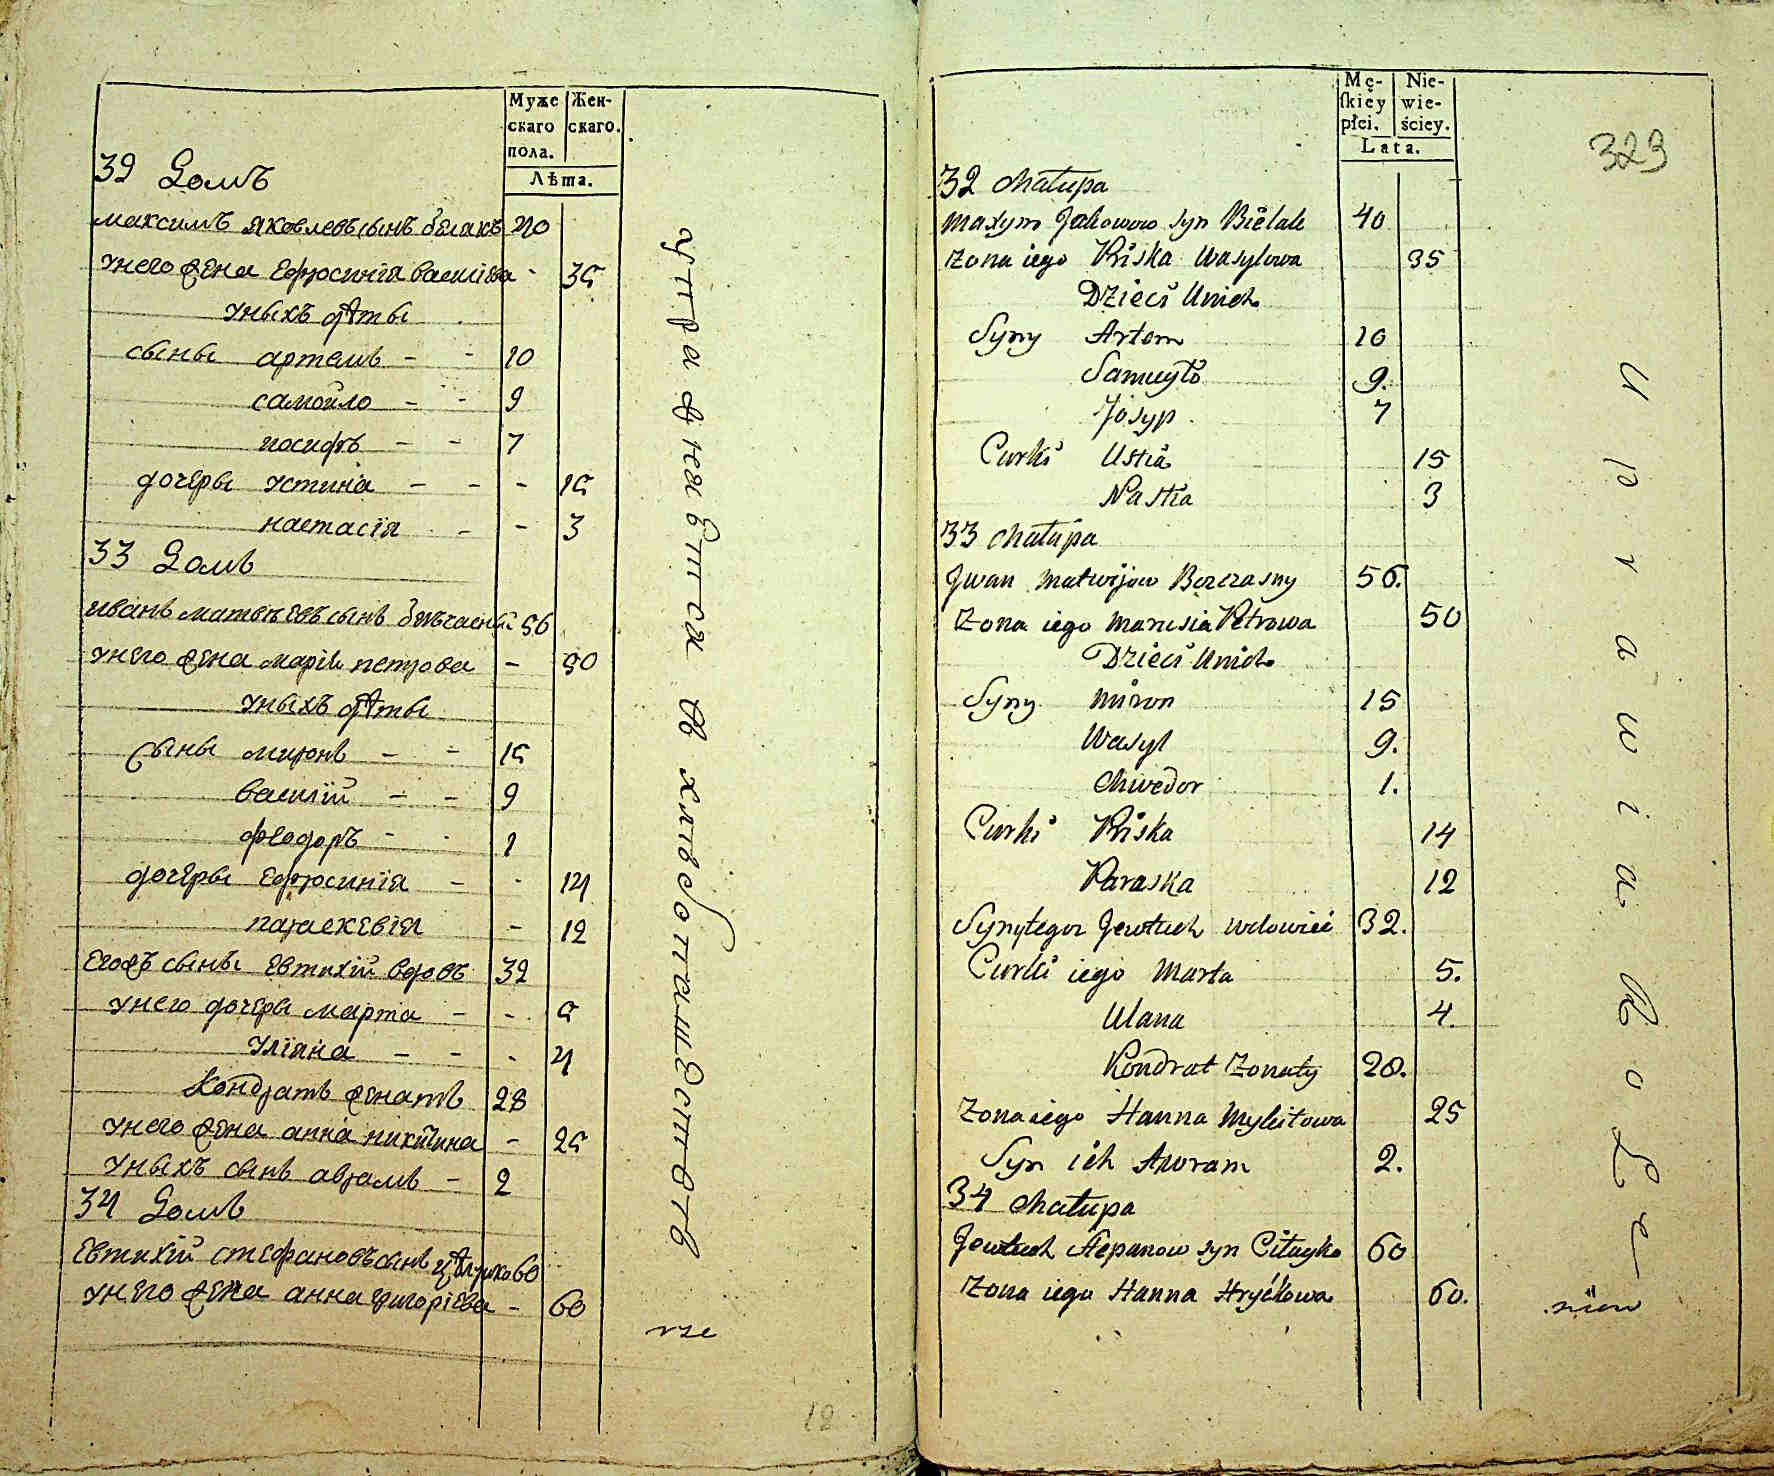 Муже
скаго
пола.
Жен-
скаго.
Лѣта.
32 Домъ
максимъ яковлевъ сынъ белакъ 40
унего жена ефросиния василева - 35
уныхъ дѣты
сыны артемъ - - 10
самойло - - 9
иосифъ - - 7
дочеры устина - - - 15
настасія - - 3
33 Домъ
иванъ матвѣевъ сынъ 56
унего жена марія петрова - 50
уныхъ дѣты
сыны миронъ - - 15
василий - - 9
феодоръ - - 1
дочеры ефросинія - - 14
параскевія - 12
егожъ сыны евтихій вдовъ 32
унего дочеры марта - - 5
уліяна - - - 4
кондратъ женатъ 28
унего жена анна никитина - 25
уныхъ сынъ аврамъ - 2
34 Домъ
евтихій стефановъ сынъ 60
унего жена анна григоріева - 60
упражняется въ хлебопашествѣ
rze
12
Mę-
skiey
płci.
Nie-
wie-
ściey.
Lata.
323
32 chałupa
Maxym Jakowow syn Bielak 40
Żona iego Priska Wasylowa 35
Dzieci Unich
Syny Artem 10
Samuyło 9.
Josyp 7
Curki Ustia 15
Nastia 3
33 chałupa
Jwan Matwijow Bezczasny 56.
Żona iego Marusia Petrowa 50
Dzieci Unich
Syny Miron 15
Wasyl 9.
Chwedor 1.
Curki Priska 14
Paraska 12
Syny tegoż Jewtuch wdowiec 32.
Curki iego Marta 5.
Ulana 4.
Kondrat Żonaty 28.
Żona iego Hanna Mykitowa 25
Syn ich Awram 2.
34 chałupa
Jewtuch Stepanow syn 60
Żona iego Hanna Hryćkowa 60.
uprawia Role